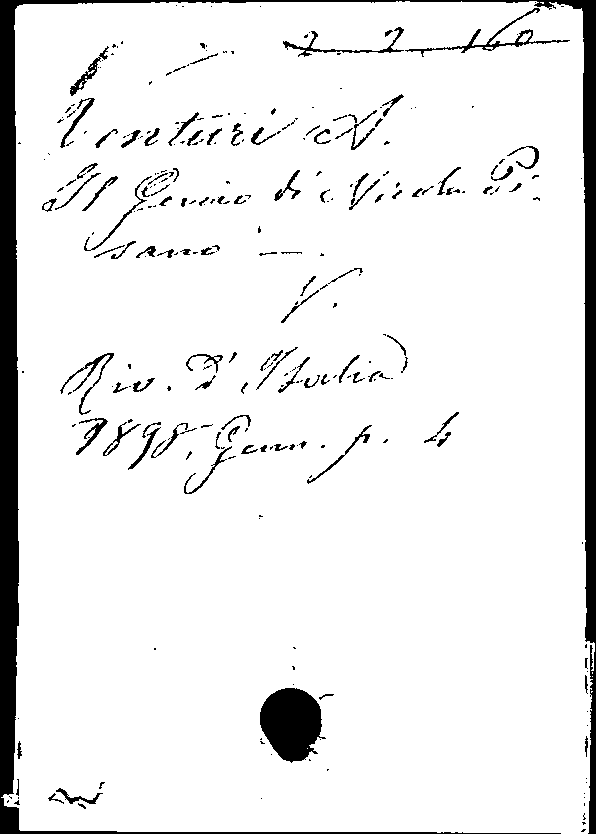 2 2 160
Venturi A.
Il Genio di Nicola Pi-
sano —.
V.
Riv. d'Italia
1898, Genn. p. 4